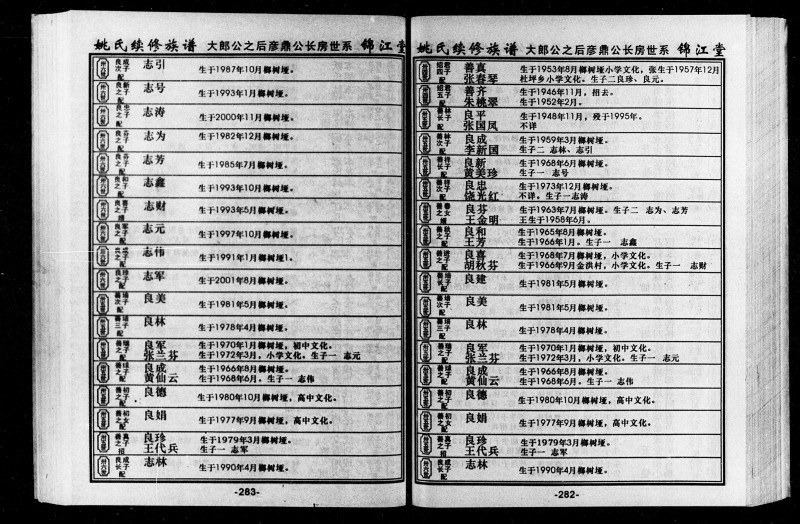 姚氏续修族谱 大郎公之后彦鼎公长房世系 锦江堂
良成次子 配 志引 生于1987年10月榔树垭。
良新之子 配 志号 生于1993年1月榔树垭。
良忠之子 配 志涛 生于2000年11月榔树垭。
良芬之子 配 志为 生于1982年12月榔树垭。
良芬之子 配 志芳 生于1985年7月榔树垭。
良和之子 配 志鑫 生于1993年10月榔树垭。
良喜之子 志财 生于1993年5月榔树垭。
良军之子 配 志元 生于1997年10月榔树垭。
良成之子 配 志伟 生于1991年1月榔树垭1。
良珍之子 配 志军 生于2001年8月榔树垭。
次子 配 良美 生于1981年5月榔树垭。
三子 配 良林 生于1978年4月榔树垭。
之子 配 良军 生于1970年1月榔树垭，初中文化。
张兰芬 生于1972年3月，小学文化。生子一 志元
之子 配 良成 生于1966年8月榔树垭。
黄仙云 生于1968年6月，生子一 志伟
善初之子 配 良德 生于1980年10月榔树垭，高中文化。
善初之女 配 良娟 生于1977年9月榔树垭，高中文化。
善真之子 招 良珍 生于1979年3月榔树垭。
王代兵 生子一 志军
良成长子 配 志林 生于1990年4月榔树垭。
-283-
姚氏续修族谱 大郎公之后彦鼎公长房世系 锦江堂
绍君四子 配 善真 生于1953年8月榔树垭小学文化，张生于1957年12月
张春琴 杜坪乡小学文化。生子二良珍、良元。
绍君五子 配 善齐 生于1946年11月，招去。
朱桃翠 生于1952年2月。
善林长子 配 良平 生于1948年11月，殁于1995年。
张国凤 不详
善林次子 配 良成 生于1959年3月榔树垭。
李新国 生子二 志林、志引
善祥长子 配 良新 生于1968年6月榔树垭。
黄美珍 生子一 志号
善祥次子 配 良忠 生于1973年12月榔树垭。
饶光红 不详，生子一志涛
善春之女 良芬 生于1963年7月榔树垭。生子二 志为、志芳
王金明 王生于1958年6月。
善秋之子 配 良和 生于1965年8月榔树垭。
王芳 生于1966年1月。生子一 志鑫
之子 配 良喜 生于1968年7月榔树垭，小学文化。
胡秋芬 生于1966年9月金洪村，小学文化。生子一 志财
长子 配 良建 生于1981年5月榔树垭。
次子 配 良美 生于1981年5月榔树垭。
三子 配 良林 生于1978年4月榔树垭。
之子 配 良军 生于1970年1月榔树垭，初中文化。
张兰芬 生于1972年3月，小学文化。生子一 志元
之子 配 良成 生于1966年8月榔树垭。
黄仙云 生于1968年6月。生子一 志伟
善初之子 配 良德 生于1980年10月榔树垭，高中文化。
善初之女 配 良娟 生于1977年9月榔树垭，高中文化。
善真之子 招 良珍 生于1979年3月榔树垭。
王代兵 生子一 志军
良成长子 配 志林 生于1990年4月榔树垭。
-282-